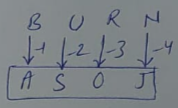 B U R N
-1 -2 -3 -4
A S O J